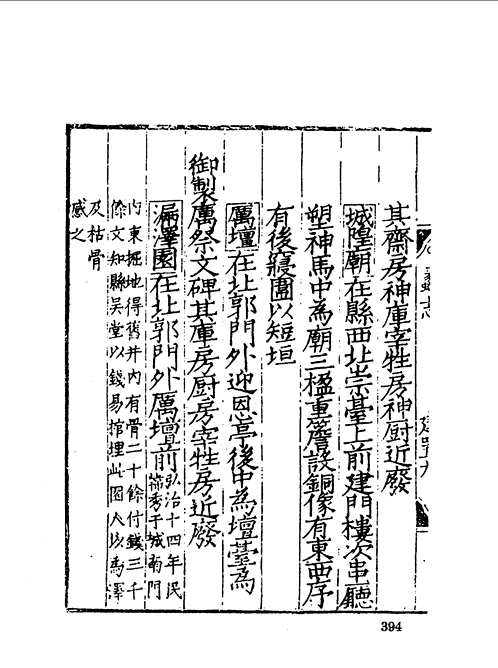 其齋房神庫宰牲房神厨近廢
城隍廟在縣西北崇臺上前建門樓次串廳
塑神馬中為廟三楹重簷設銅像有東西序
有後寢圍以短垣
厲壇在北郭門外迎恩亭後中為壇臺為
御製厲祭文碑其庫房厨房宰牲房近廢
漏澤園在北郭門外厲壇前弘治十四年民
簫秀于城南門
内東掘地得舊井内有骨二十餘付錢三千
餘文知縣吴堂以錢易棺埋此園人以為澤
及枯骨
感之
394